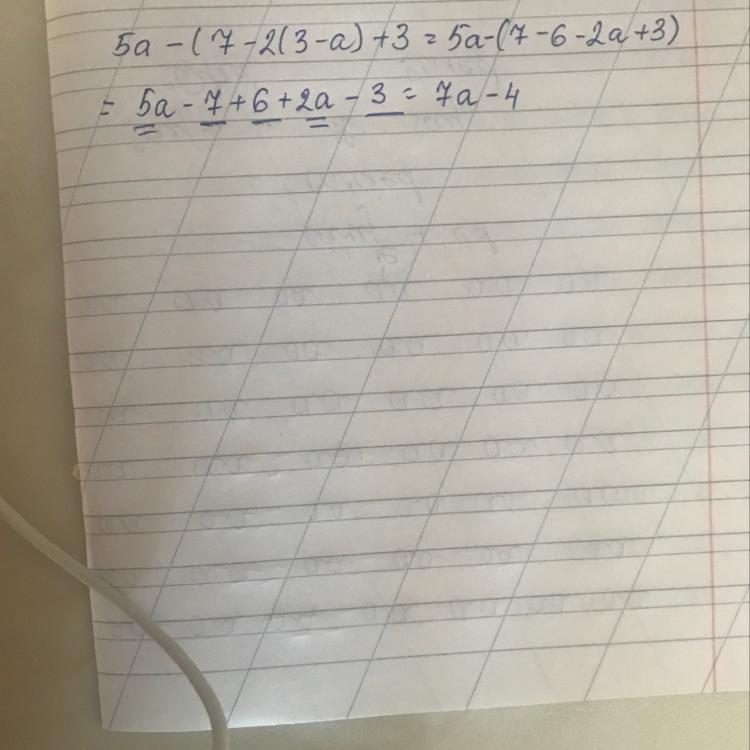 5a - (7 - 2(3 - a) + 3 = 5a - (7 - 6 - 2a + 3)
= 5a - 7 + 6 + 2a - 3 = 7a - 4